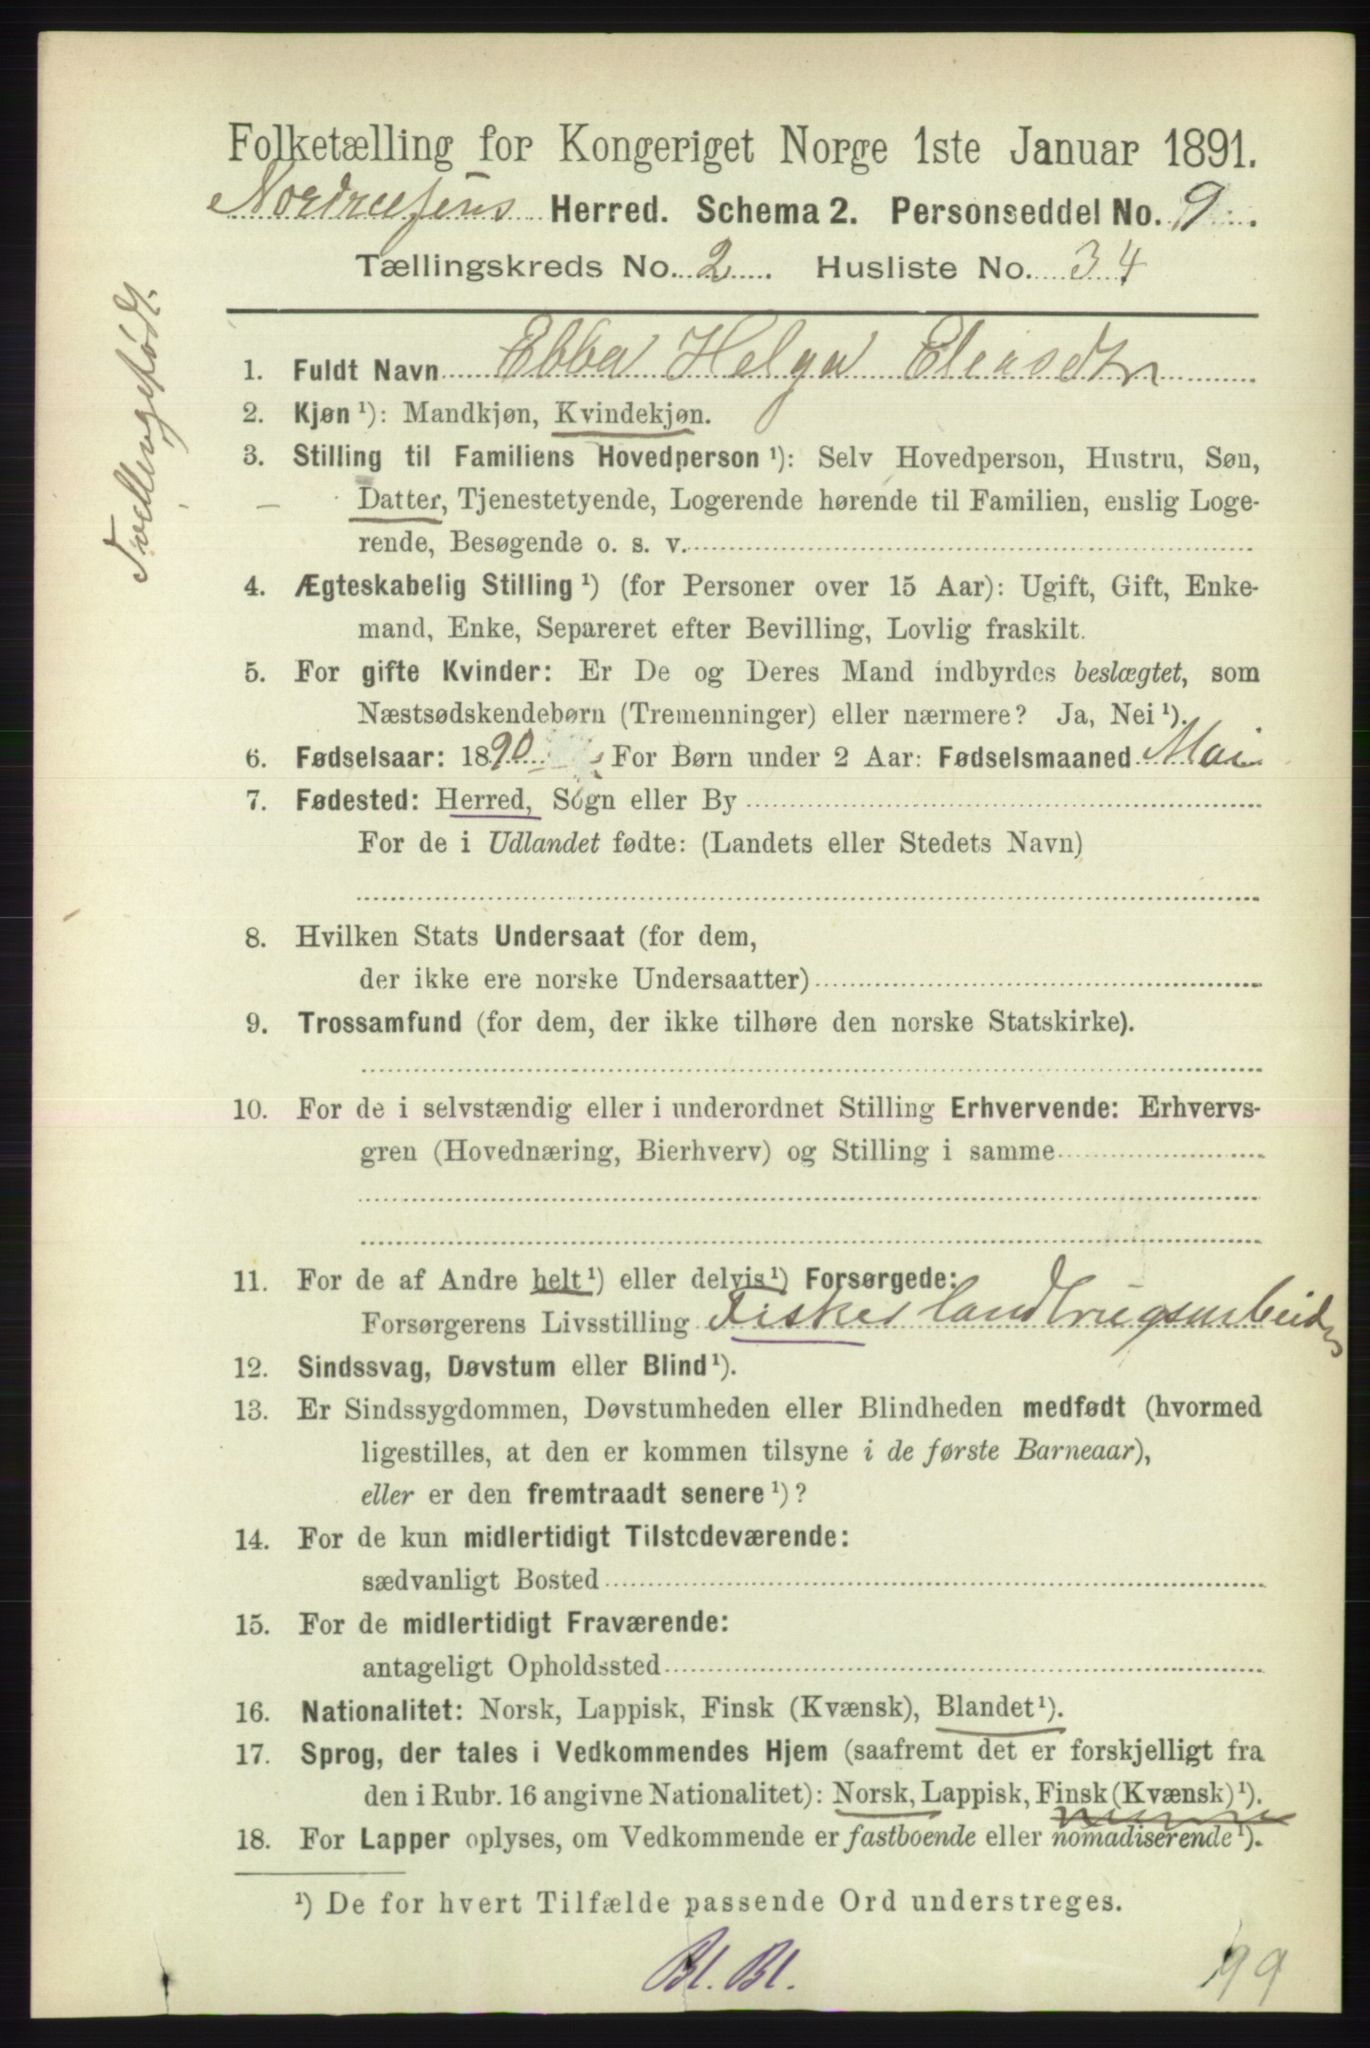 Folketælling for Kongeriget Norge 1ste Januar 1891.
Nordreisens Herred. Schema 2. Personseddel No. 9.
Tællingskreds No. 2. Husliste No. 34
Tvellingefødt.
1. Fuldt Navn Ebba Helga Eliasdtr
2. Kjøn ¹): Mandkjøn, Kvindekjøn.
3. Stilling til Familiens Hovedperson ¹): Selv Hovedperson, Hustru, Søn,
Datter, Tjenestetyende, Logerende hørende til Familien, enslig Loge-
rende, Besøgende o. s. v.
4. Ægteskabelig Stilling ¹) (for Personer over 15 Aar): Ugift, Gift, Enke-
mand, Enke, Separeret efter Bevilling, Lovlig fraskilt.
5. For gifte Kvinder: Er De og Deres Mand indbyrdes beslægtet, som
Næstsødskendebørn (Tremenninger) eller nærmere? Ja, Nei ¹).
6. Fødselsaar: 1890 For Børn under 2 Aar: Fødselsmaaned Mai
7. Fødested: Herred, Sogn eller By
For de i Udlandet fødte: (Landets eller Stedets Navn)
8. Hvilken Stats Undersaat (for dem,
der ikke ere norske Undersaatter)
9. Trossamfund (for dem, der ikke tilhøre den norske Statskirke).
10. For de i selvstændig eller i underordnet Stilling Erhvervende: Erhvervs-
gren (Hovednæring, Bierhverv) og Stilling i samme
11. For de af Andre helt ¹) eller delvis ¹) Forsørgede:
Forsørgerens Livsstilling Fisker landbrugsarbeider
12. Sindssvag, Døvstum eller Blind ¹).
13. Er Sindssygdommen, Døvstumheden eller Blindheden medfødt (hvormed
ligestilles, at den er kommen tilsyne i de første Barneaar),
eller er den fremtraadt senere ¹)?
14. For de kun midlertidigt Tilstedeværende:
sædvanligt Bosted
15. For de midlertidigt Fraværende:
antageligt Opholdssted
16. Nationalitet: Norsk, Lappisk, Finsk (Kvænsk), Blandet ¹).
17. Sprog, der tales i Vedkommendes Hjem (saafremt det er forskjelligt fra
den i Rubr. 16 angivne Nationalitet): Norsk, Lappisk, Finsk (Kvænsk) ¹).
18. For Lapper oplyses, om Vedkommende er fastboende eller nomadiserende ¹).
¹) De for hvert Tilfælde passende Ord understreges.
Bl. Bl.
199